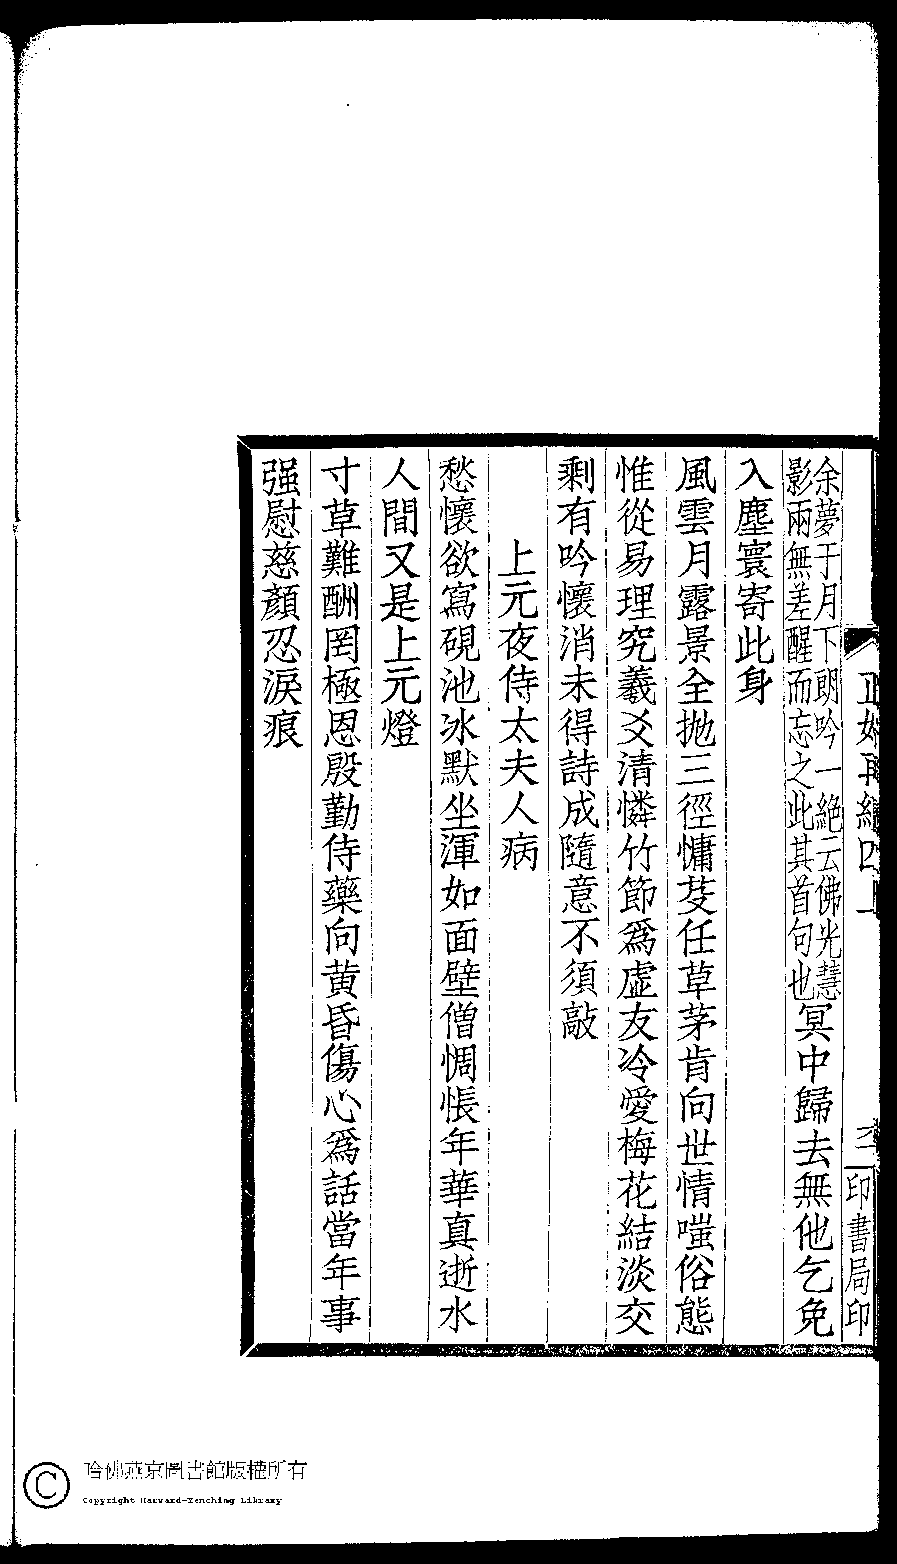 余夢于月下朗吟一絕云佛光慧
影兩無差醒而忘之此其首句也
冥中歸去無他乞免
入塵寰寄此身
風雲月露景全拋三徑慵芟任草茅肯向世情嗤俗態
惟從易理究羲爻清憐竹節爲虛友冷愛梅花結淡交
剩有吟懷消未得詩成隨意不須敲
上元夜侍太夫人病
愁懷欲寫硯池冰默坐渾如面壁僧惆悵年華真逝水
人間又是上元燈
寸草難酬罔極恩殷勤侍藥向黃昏傷心爲話當年事
强慰慈顏忍淚痕
印書局印
哈佛燕京圖書館版權所有
Copyright Harvard-Yenching Library